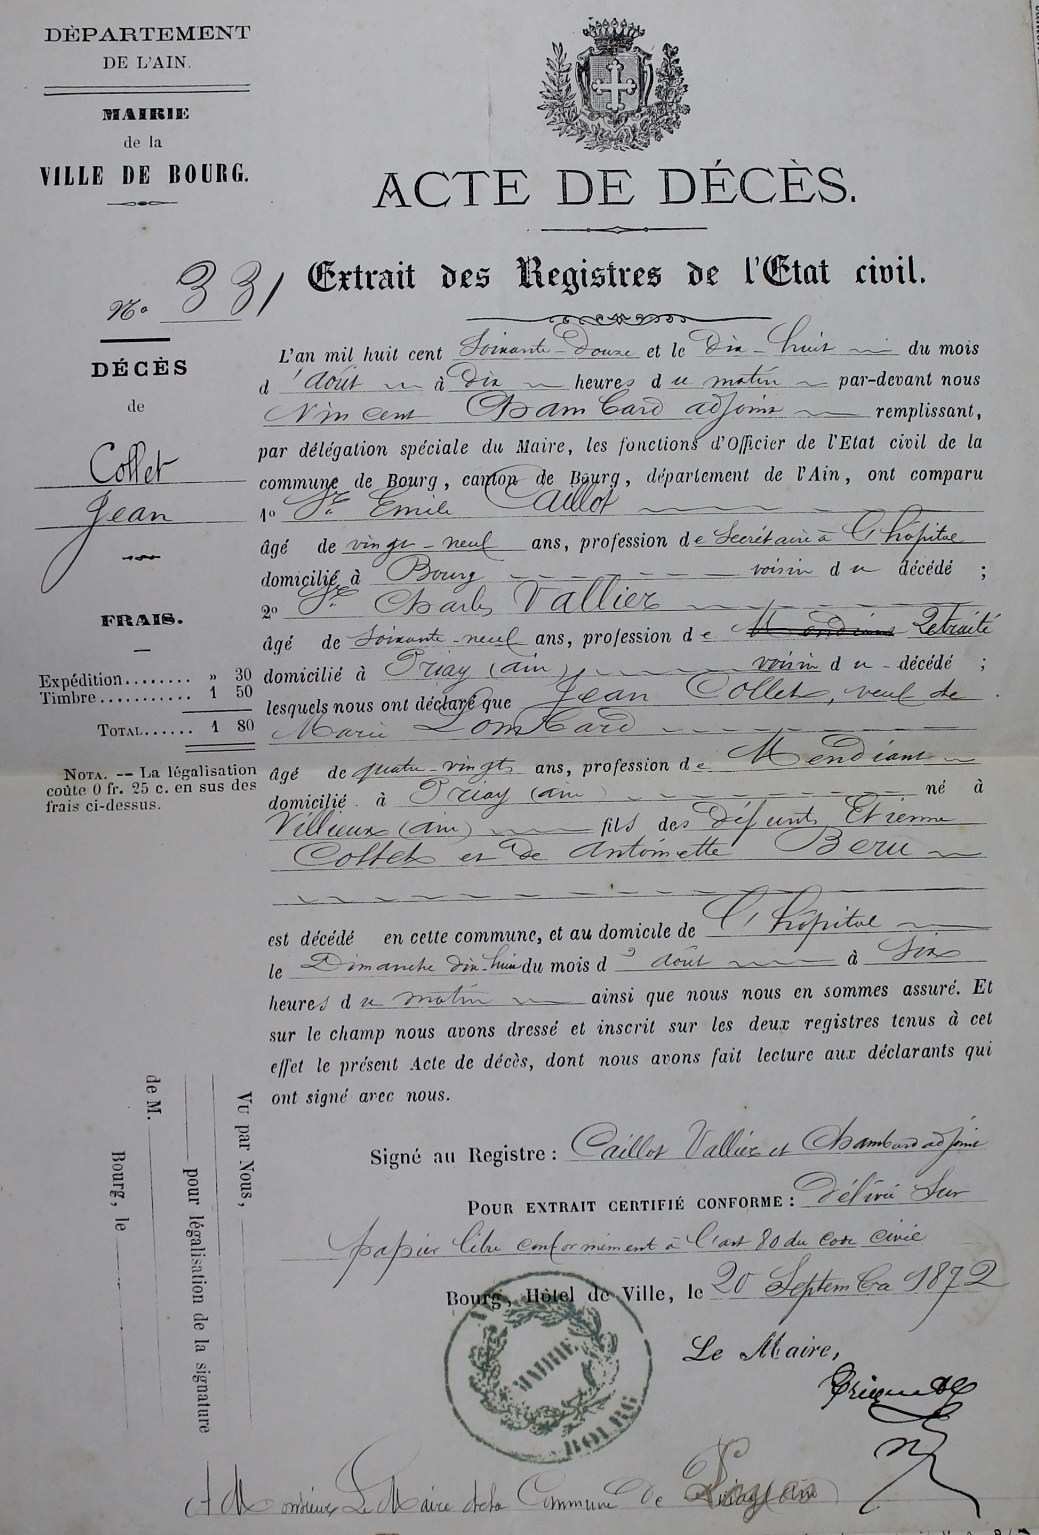 DÈPARTEMENT
DE L'AIN.
MAIRIE
de la
VILLE DE BOURG.
ACTE DE DÉCÈS.
Extrait des Registres de l'Etat civil.
No 331
DÉCÈS
de
Collet
Jean
FRAIS.
Expédition........ » 30
Timbre........... 1 50
TOTAL...... 1 80
NOTA. -- La légalisation
coûte 0 fr. 25 c. en sus des
frais ci-dessus.
L'an mil huit cent Soixante-Douze et le Dix-huit du mois
d'août à Dix heures du matin par-devant nous
Vincent Chambard adjoint remplissant,
par délégation spéciale du Maire, les fonctions d'Officier de l'Etat civil de la
commune de Bourg, canton de Bourg, département de l'Ain, ont comparu
1o Sr Emile Caillot
âgé de vingt-neuf ans, profession de Secrétaire à l'hôpital
domicilié à Bourg voisin du décédé ;
2o Sr Charles Vallier
âgé de Soixante-neuf ans, profession de Mendiant Retraité
domicilié à Priay (ain) voisin du décédé ;
lesquels nous ont déclaré que Jean Collet, veuf de
Marie Lombard
âgé de quatre-vingts ans, profession de Mendiant
domicilié à Priay (ain) né à
Villieux (ain) fils des défunts Etienne
Collet et de Antoinette Beru
est décédé en cette commune, et au domicile de l'hôpital
le Dimanche dix-huit du mois d'août à Six
heures du matin ainsi que nous nous en sommes assuré. Et
sur le champ nous avons dressé et inscrit sur les deux registres tenus à cet
effet le présent Acte de décès, dont nous avons fait lecture aux déclarants qui
ont signé avec nous.
Signé au Registre : Caillot Vallier et Chambard adjoint
POUR EXTRAIT CERTIFIÉ CONFORME : délivré Sur
papier libre conformément à l'art 80 du code civil
Bourg, Hôtel de Ville, le 20 Septembre 1872
Le Maire,
MAIRIE
BOURG
VU par Nous,
pour légalisation de la signature
de M.
Bourg, le
A Monsieur Le Maire de la Commune de Priay (ain)